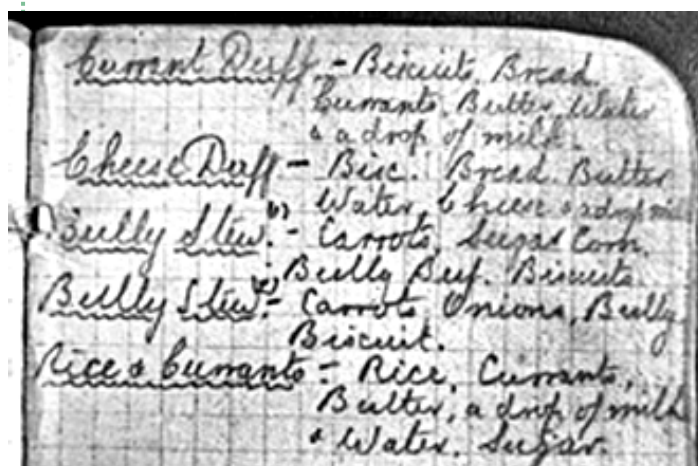 Currant Duff - Biscuits, Bread.
Currants, Butter, Water
& a drop of milk.
Cheese Duff - Bisc. Bread. Butter
Water, Cheese & a drop milk
Bully Stew (1) - Carrots, Sugar Corn.
Bully Beef. Biscuits.
Bully Stew (2) - Carrots, Onions, Bully
Biscuit.
Rice & Currants - Rice, Currants,
Butter, a drop of milk
& Water. Sugar.